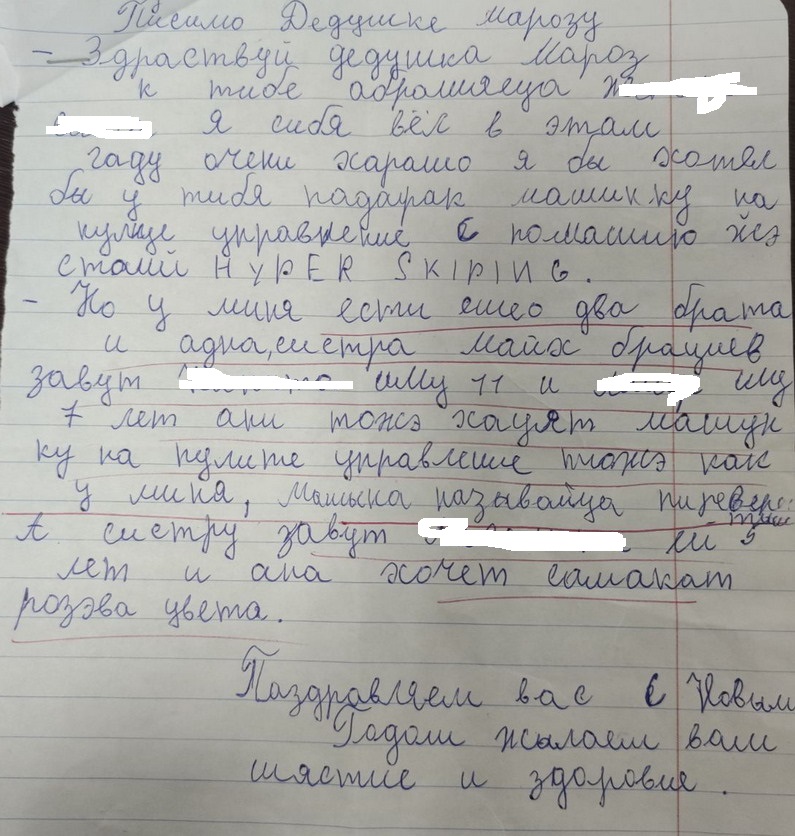 Писмо Дедушке марозу
- Здраствуй дедушка Мароз
к тибе абрашяеца
Я сибя вёл в этам
гаду очени харашо я бы хотял
бы у тибя падарак машинку на
кулце управление с помашию йэ
стаий HYPER SKIPING.
- Но у миня ести ешео два брата
и адна,систра майх брациев
завут иму 11 и иму
7 лет ани тожэ хацят машун
ку на пулите управление тожэ как
у миня, Машына называйца пиревёр
тыш
А систру завут ей 5
лет и ана хочет самакат
розэва цвета.
Паздравляем вас с Новым
Годам жылаем вам
шястие и здоровие.